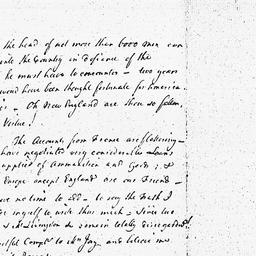 the head of not more than 6000 men can
the Country in Defiance of the
he must have to encounter - two years
would have been thought fortunate for America
Oh New England are thou so fallen,
Virtue!
The Accounts from France are flattering -
have negotiated very considerable
supplies of Ammunition and Goods; &
Europe except England are our Friends -
no time to add - to say the Truth I
myself to write thus much; Since two
& remain totally disregarded!
Compts to Mr Jay and believe me